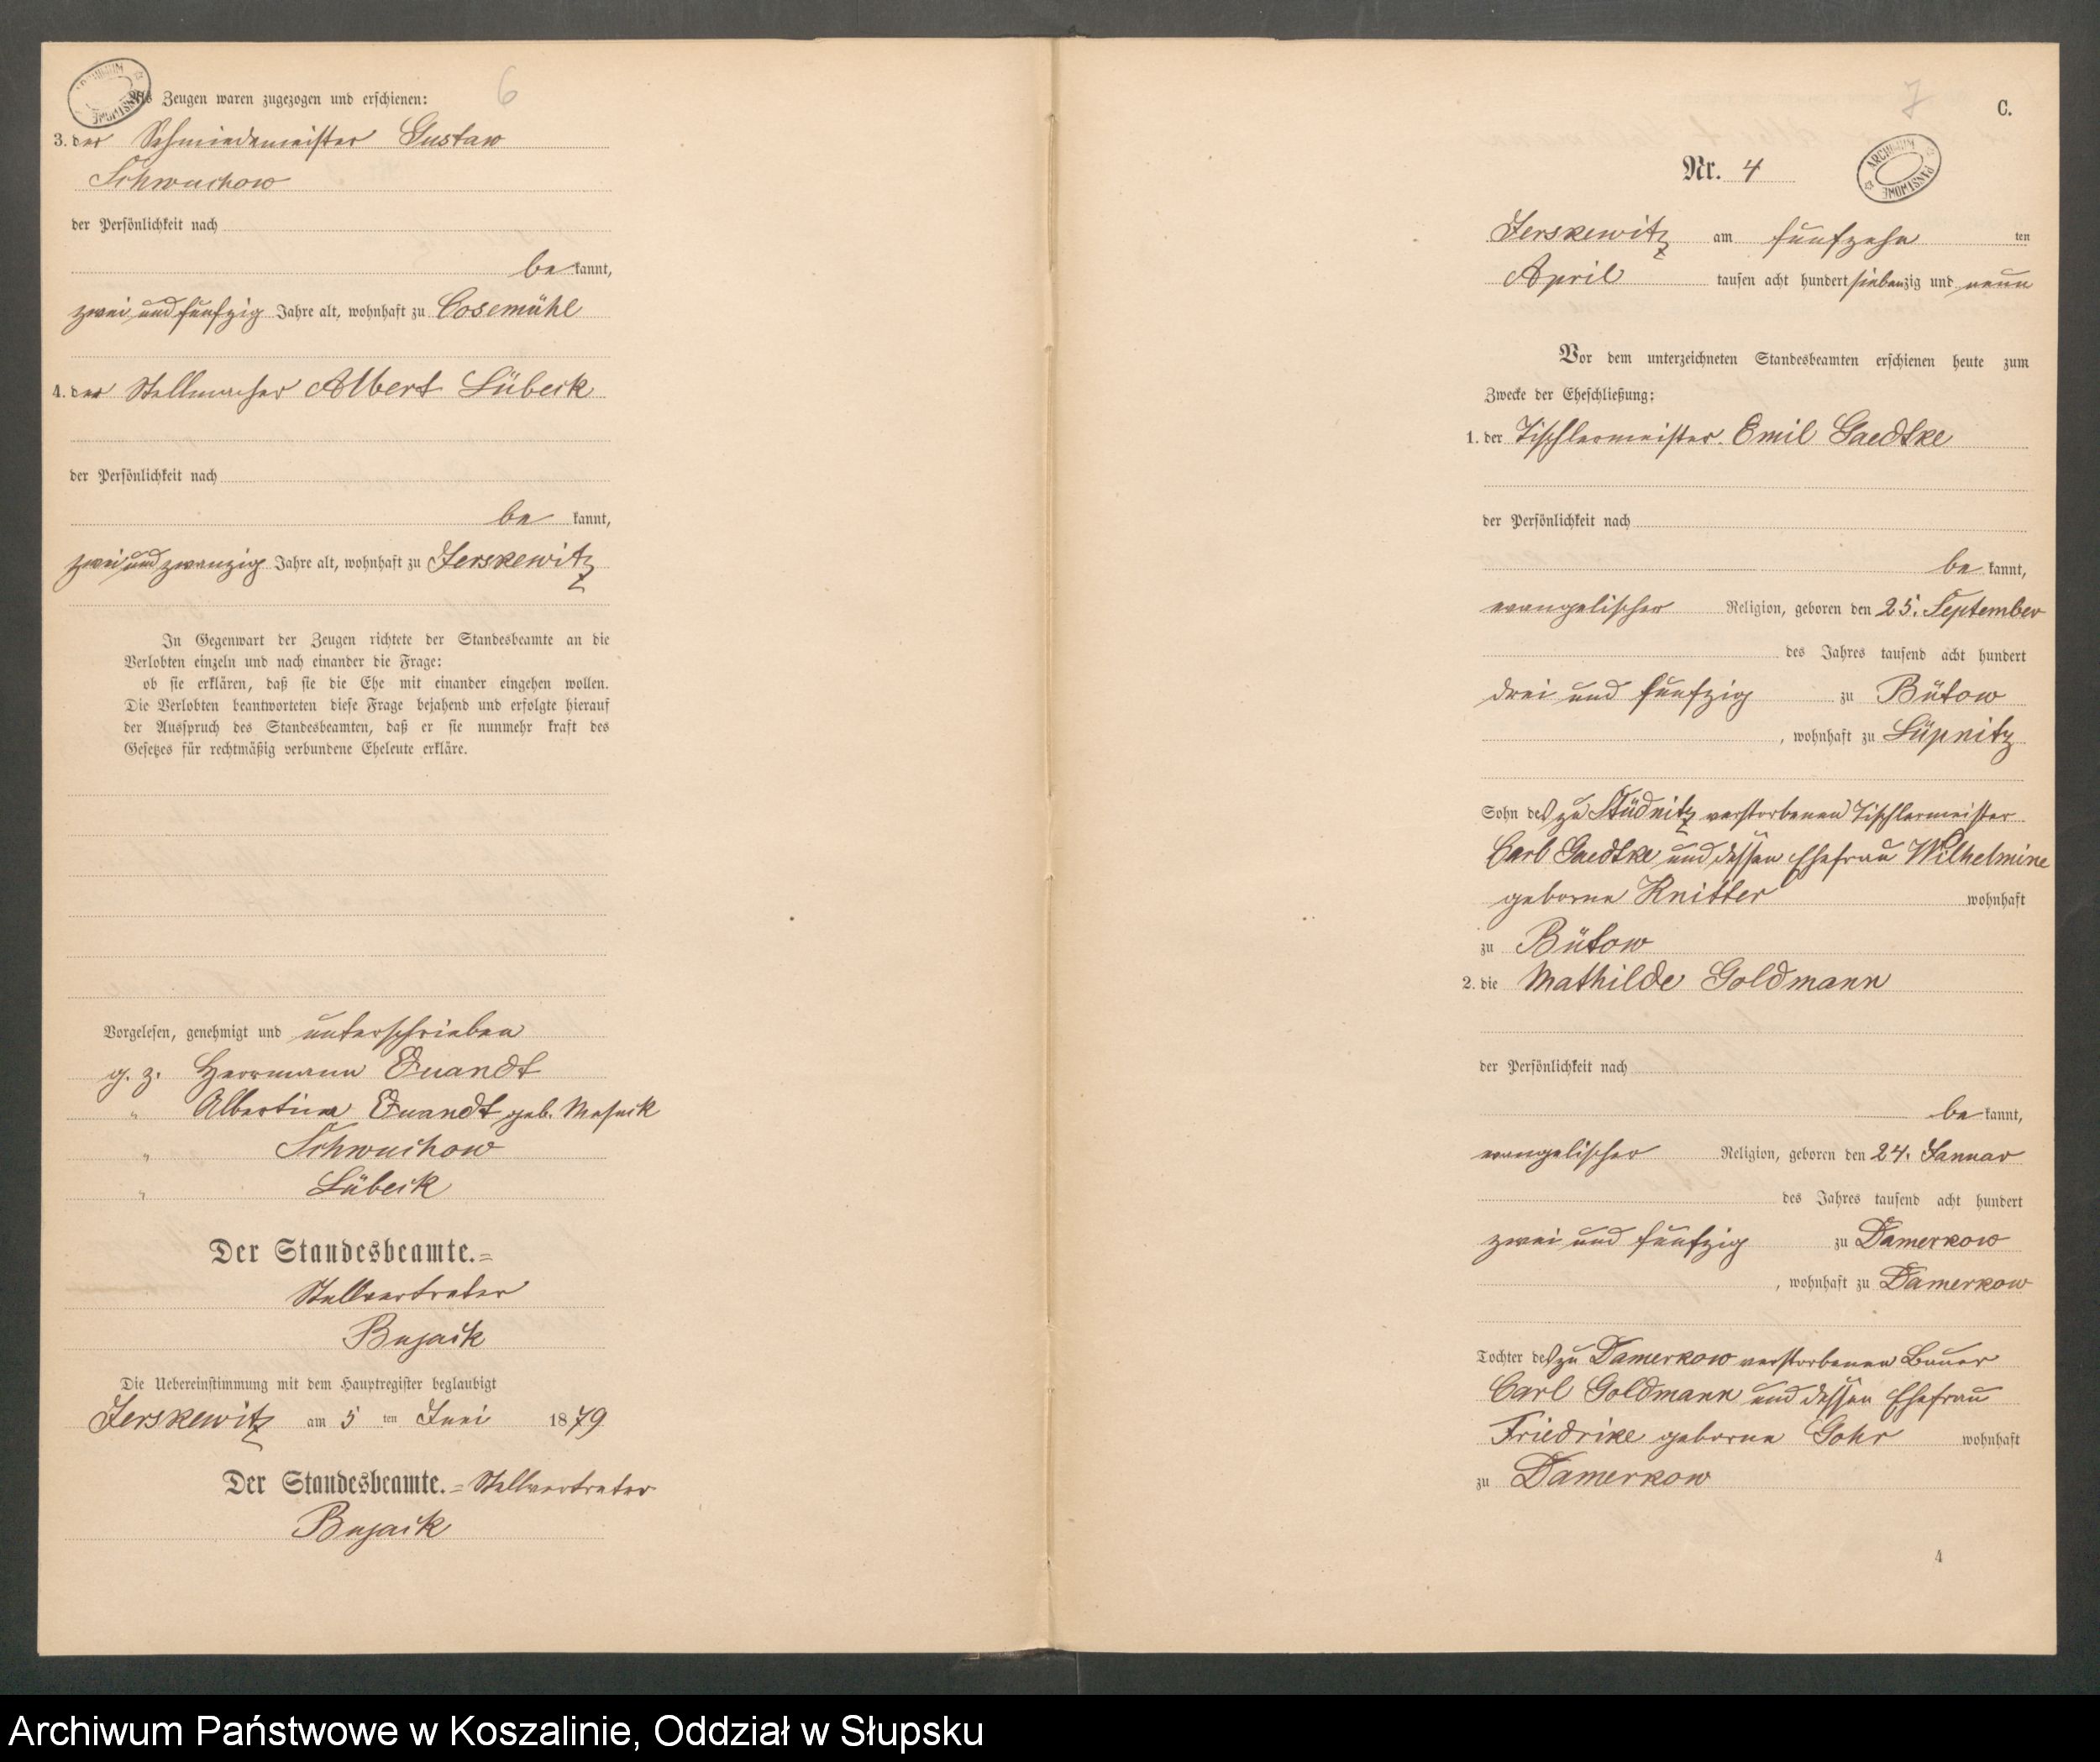 6
Als Zeugen waren zugezogen und erschienen:
3. der Schmiedemeister Gustav
Schwuchow
der Persönlichkeit nach
be kannt,
zwei und fünfzig Jahre alt, wohnhaft zu Cosemühl
4. der Stellmacher Albert Lübeck
der Persönlichkeit nach
be kannt,
zwei und zwanzig Jahre alt, wohnhaft zu Jerskewitz
In Gegenwart der Zeugen richtete der Standesbeamte an die
Verlobten einzeln und nach einander die Frage:
ob sie erklären, daß sie die Ehe mit einander eingehen wollen.
Die Verlobten beantworteten diese Frage bejahend und erfolgte hierauf
der Ausspruch des Standesbeamten, daß er sie nunmehr kraft des
Gesetzes für rechtmäßig verbundene Eheleute erkläre.
Vorgelesen, genehmigt und unterschrieben
g. z. Herrmann Quandt
" Albertine Quandt geb.
" Schwuchow
" Lübeck
Der Standesbeamte.=
Stellvertreter
Bujack
Die Uebereinstimmung mit dem Hauptregister beglaubigt
Jerskewitz am 5 ten Juni 1879
Der Standesbeamte.= Stellvertreter
Bujack
7
C.
Nr. 4
ARCHIWUM PAŃSTWOWE
Jerskewitz am fünfzehn ten
April tausen acht hundert siebenzig und neun
Vor dem unterzeichneten Standesbeamten erschienen heute zum
Zwecke der Eheschließung:
1. der Tischlermeister Emil Gaedtke
der Persönlichkeit nach
be kannt,
evangelischer Religion, geboren den 25. September
des Jahres tausend acht hundert
drei und fünfzig zu Bütow
, wohnhaft zu Lüpnitz
Sohn des zu Stüdnitz verstorbenen Tischlermeister
Carl Gaedtke und dessen Ehefrau Wilhelmine
geborne Knitter wohnhaft
zu Bütow
2. die Mathilde Goldmann
der Persönlichkeit nach
be kannt,
evangelischer Religion, geboren den 24. Januar
des Jahres tausend acht hundert
zwei und fünfzig zu Damerkow
, wohnhaft zu Damerkow
Tochter des zu Damerkow verstorbenen Bauer
Carl Goldmann und dessen Ehefrau
Friedrike geborne Gohr wohnhaft
zu Damerkow
4
Archiwum Państwowe w Koszalinie, Oddział w Słupsku